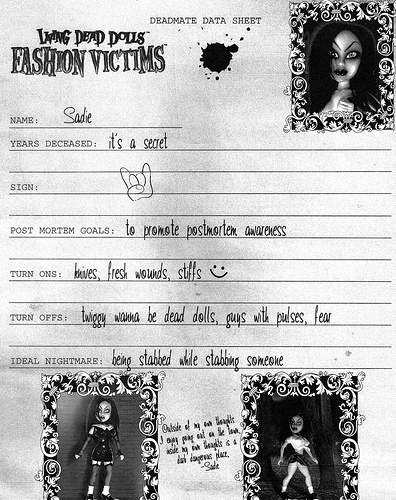 DEADMATE DATA SHEET
LIVING DEAD DOLLS
FASHION VICTIMS
NAME: Sadie
YEARS DECEASED: it's a secret
SIGN:
POST MORTEM GOALS: to promote postmortem awareness
TURN ONS: knives, fresh wounds, stiffs
TURN OFFS: twiggy wanna be dead dolls, guys with pulses, fear
IDEAL NIGHTMARE: being stabbed while stabbing someone
Outside of my own thoughts
I enjoy going out on the town,
inside my own thoughts is a
dark dangerous place.
-Sadie